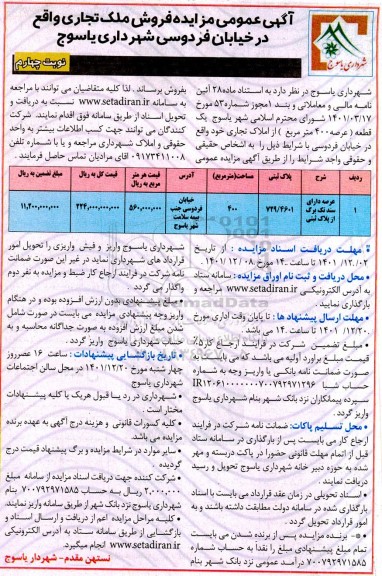 آگهی عمومی مزایده فروش ملک تجاری واقع
در خیابان فردوسی شهرداری یاسوج
شهرداری یاسوج
نوبت چهارم
شهرداری یاسوج در نظر دارد به استناد ماده ۲۸ آئین
نامه مالی و معاملاتی و بند ۱ مجوز شماره ۵۳ مورخ
۱۴۰۱/۰۳/۱۷ شورای محترم اسلامی شهر یاسوج یک
قطعه (عرصه ۴۰۰ متر مربع) از املاک تجاری خود واقع
در خیابان فردوسی با شرایط ذیل را به اشخاص حقیقی
و حقوقی واجد شرایط را از طریق آگهی مزایده عمومی
بفروش برساند. لذا کلیه متقاضیان می توانند با مراجعه
به سامانه www.setadiran.ir نسبت به دریافت و
تحویل اسناد از طریق سامانه فوق اقدام نمایند. شرکت
کنندگان می توانند جهت کسب اطلاعات بیشتر به واحد
حقوقی و املاک شهرداری مراجعه و یا با شماره تلفن
۰۹۱۷۳۴۱۱۰۰۸ آقای مرادیان تماس حاصل فرمایند.
ردیف شرح پلاک ثبتی مساحت(مترمربع) آدرس قیمت هر متر مربع به ریال قیمت کل به ریال مبلغ تضمین به ریال
۱ عرصه دارای سند تک برگ از پلاک ثبتی ۷۴۹/۴۶۰۱ ۴۰۰ خیابان فردوسی جنب بیمه سلامت شهر یاسوج ۵۶۰,۰۰۰,۰۰۰ ۲۲۴,۰۰۰,۰۰۰,۰۰۰ ۱۱,۲۰۰,۰۰۰,۰۰۰
مهلت دریافت اسناد مزایده : از تاریخ
۱۴۰۱/۱۲/۰۲ تا ساعت ۱۴ مورخ ۱۴۰۱/۱۲/۰۸
• محل دریافت و ثبت نام اوراق مزایده : سامانه ستاد
به آدرس الکترونیکی www.setadiran.ir مراجعه و
بارگذاری نمایند.
• مهلت ارسال پیشنهاد ها : تا پایان وقت اداری مورخ
۱۴۰۱/۱۲/۲۰ تا ساعت ۱۴ می باشد.
• مبلغ تضمین شرکت در فرایند ارجاع کار ۵٪
قیمت مبلغ برآورد اولیه می باشد که می بایست به
صورت ضمانت نامه بانکی یا واریز وجه به شماره
حساب شبا
سپرده پیمانکاران نزد بانک شهر بنام شهرداری یاسوج
واریز گردد.
• محل تسلیم پاکات: ضمانت نامه شرکت در فرایند
ارجاع کار می بایست پس از بارگذاری در سامانه ستاد
قبل از اتمام مهلت قانونی حضورا در پاکت دربسته و مهر
شده به حوزه دبیر خانه شهرداری یاسوج تحویل و رسید
دریافت نمایند.
• اسناد تحویلی در زمان عقد قرارداد می بایست با اسناد
بارگذاری شده در سامانه دولت مطابقت داشته باشند و به
امور قرارداد تحویل گردد.
• برنده مزایده پس از برنده شدن می بایست
تمام مبلغ پیشنهادی مبلغ را نقدا به حساب شماره
۷۰۰۷۹۲۹۷۱۵۸۵ درآمد عمومی نزد بانک شهر بنام
شهرداری یاسوج واریز و فیش واریزی را تحویل امور
قرارداد های شهرداری نماید در غیر این صورت ضمانت
نامه شرکت در فرایند ارجاع کار ضبط و مزایده به نفر دوم
واگذار می گردد.
پیشنهادی بدون ارزش افزوده بوده و در هنگام
واریز وجه پیشنهادی مزایده می بایست در صورت شامل
شدن مبلغ ارزش افزوده به صورت جداگانه محاسبه و به
حساب شهرداری یاسوج واریز گردد.
• تاریخ بازگشایی پیشنهادات : ساعت ۱۶ عصر روز
چهار شنبه مورخ ۱۴۰۱/۱۲/۲۰ در محل سالن اجتماعات
شهرداری یاسوج
• شهرداری در رد یا قبول هریک یا کلیه پیشنهادات
مختار است.
• کلیه کسورات قانونی و هزینه درج آگهی به عهده برنده
مزایده می باشد.
• سایر موارد در شرایط مزایده و برگ پیشنهاد قیمت درج
گردیده
• شرکت کننده جهت دریافت اسناد مزایده از سامانه مبلغ
۲,۰۰۰,۰۰۰ ریال به حساب ۷۰۰۷۹۲۹۷۱۵۸۵ بنام
شهرداری یاسوج نزد بانک شهر از طریق سامانه واریز نمایند.
• کلیه مراحل مزایده اعم از دریافت و ارسال اسناد و
بازگشایی از طریق سامانه ستاد به آدرس الکترونیکی
www.setadiran.ir انجام میگیرد.
نستهن مقدم- شهردار یاسوج